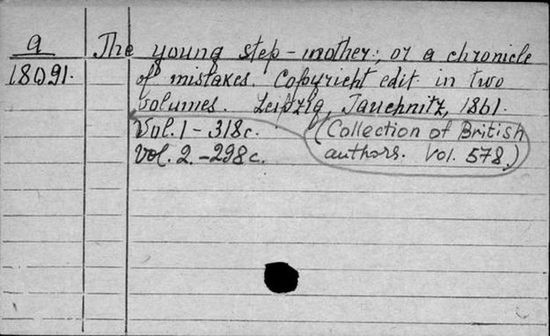 a The young step-mother; or a chronicle
18091. of mistakes. Copyricht edit in two
volumes. Leipzig, Tauchnitz, 1861.
Vol. 1 - 318c. (Collection of British
Vol. 2. - 298c. authors. Vol. 578.)